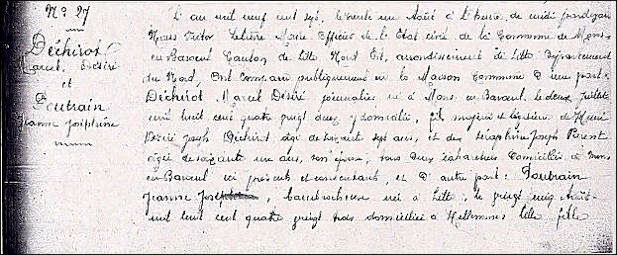 N° 27
Déchirot
Marcel, Désiré
et
Poutrain
Jeanne Joséphine
L'an mil neuf cent sept, le trente un Août à l'heure de midi pardevant
Nous Victor Maire Officier de l'Etat civil de la Commune de Mons
en Barœul Canton de Lille Nord Est, arrondissement de Lille Département
du Nord, Ont comparu publiquement en la Maison Commune D'une part:
Déchirot Marcel Désiré journalier né à Mons en Barœul, le deux Juillet
mil huit cent quatre vingt deux y domicilié, fils majeur et légitime de Henri
Désiré Joseph Déchirot âgé de soixante sept ans, et de Séraphine Joseph Parent
âgée de soixante un ans, son épouse, tous deux domiciliés à Mons
en Barœul ici présents et consentants, et D'autre part: Poutrain
Jeanne Joséphine, née à Lille, le vingt cinq Août
mil huit cent quatre vingt trois domiciliée à Hellemmes Lille fille